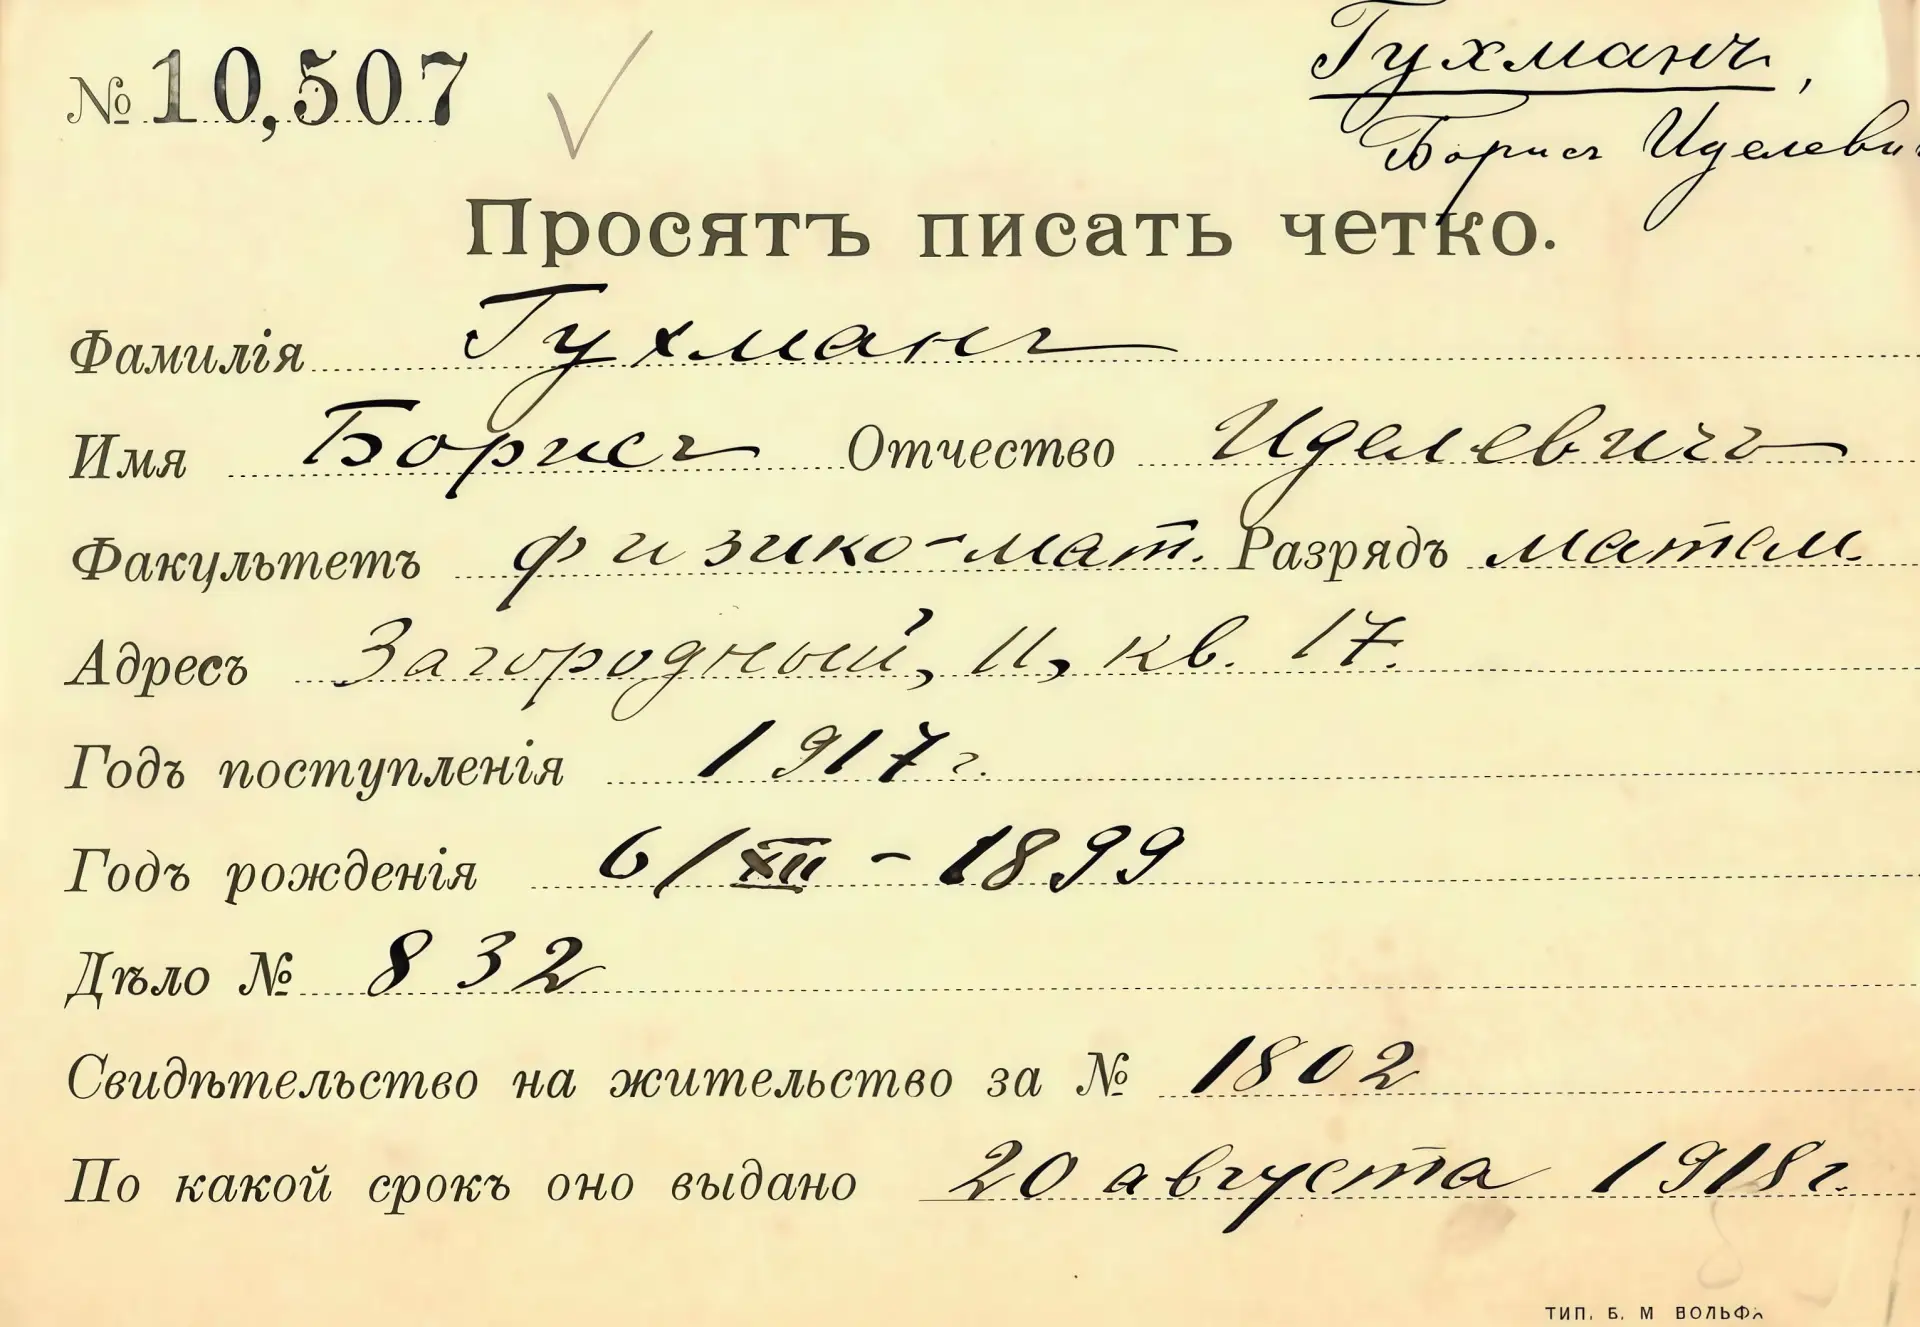 № 10,507
Гухманъ,
Борисъ Иделеви
Просятъ писать четко.
Фамилія Гухманъ
Имя Борисъ Отчество Иделевичъ
Факультетъ физико-мат. Разрядъ матем.
Адресъ Загородный, 11, кв. 17.
Годъ поступленія 1917 г.
Годъ рожденія 6/XII - 1899
Дѣло № 832
Свидѣтельство на жительство за № 1802
По какой срокъ оно выдано 20 августа 1918 г.
ТИП. Б. М ВОЛЬФА